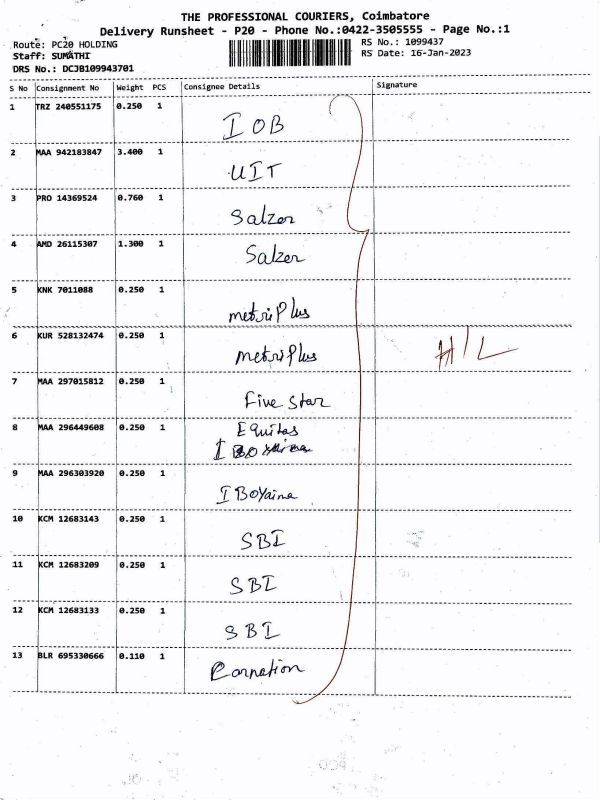 THE PROFESSIONAL COURIERS, Coimbatore
Delivery Runsheet - P20 - Phone No.:0422-3505555 - Page No.:1
Route: PC20 HOLDING RS No.: 1099437
Staff: SUMATHI RS Date: 16-Jan-2023
DRS No.: DCJB109943701
S No Consignment No Weight PCS Consignee Details Signature
1 TRZ 240551175 0.250 1
IOB
2 MAA 942183847 3.400 1
UIT
3 PRO 14369524 0.760 1
Salzer
4 AMD 26115307 1.300 1
Salzer
5 KNK 7011088 0.250 1
metriPlus
6 KUR 528132474 0.250 1
metriPlus H/L
7 MAA 297015812 0.250 1
Five Star
8 MAA 296449608 0.250 1
Equitas
9 MAA 296303920 0.250 1
I BOYaina
10 KCM 12683143 0.250 1
SBI
11 KCM 12683209 0.250 1
SBI
12 KCM 12683133 0.250 1
SBI
13 BLR 695330666 0.110 1
Carnation